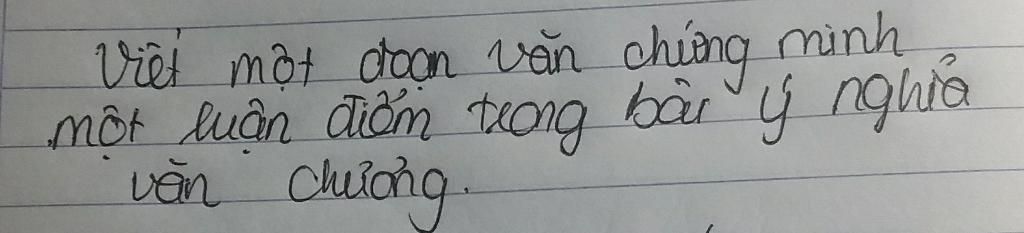 Viết một đoạn văn chứng minh
một luận điểm trong bài ý nghĩa
văn chương.